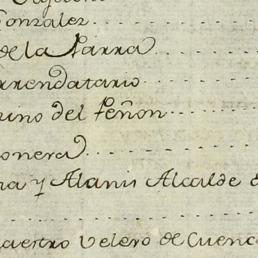 Gonzalez
de la Parra
rrendatario
uino del Peñon
onera
na y Alanis Alcalde
Maestro Velero de Cuenca